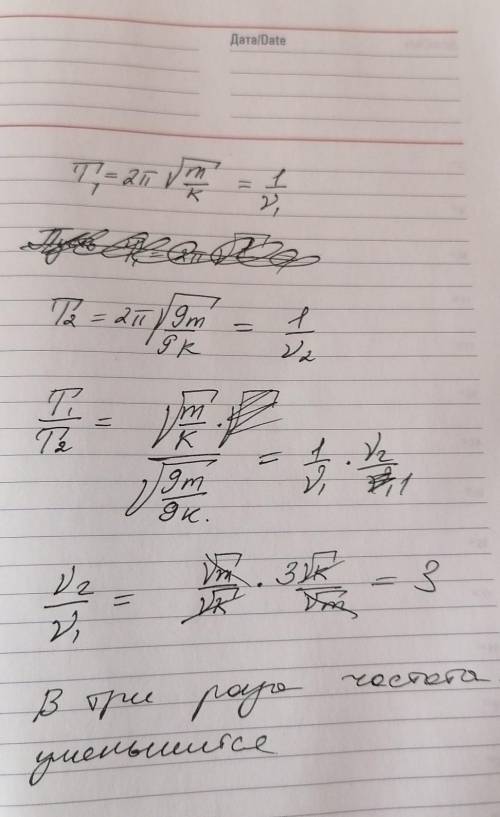 Дата/Date
T₁ = 2π √(m/k) = 1/ν₁
T₂ = 2π √(9m/9k) = 1/ν₂
T₁/T₂ = √(m/k) · / √(9m/9k) = 1/ν₁ · ν₂/1
ν₂/ν₁ = √m/√k · 3√k/√m = 3
В три раза частота
уменьшится